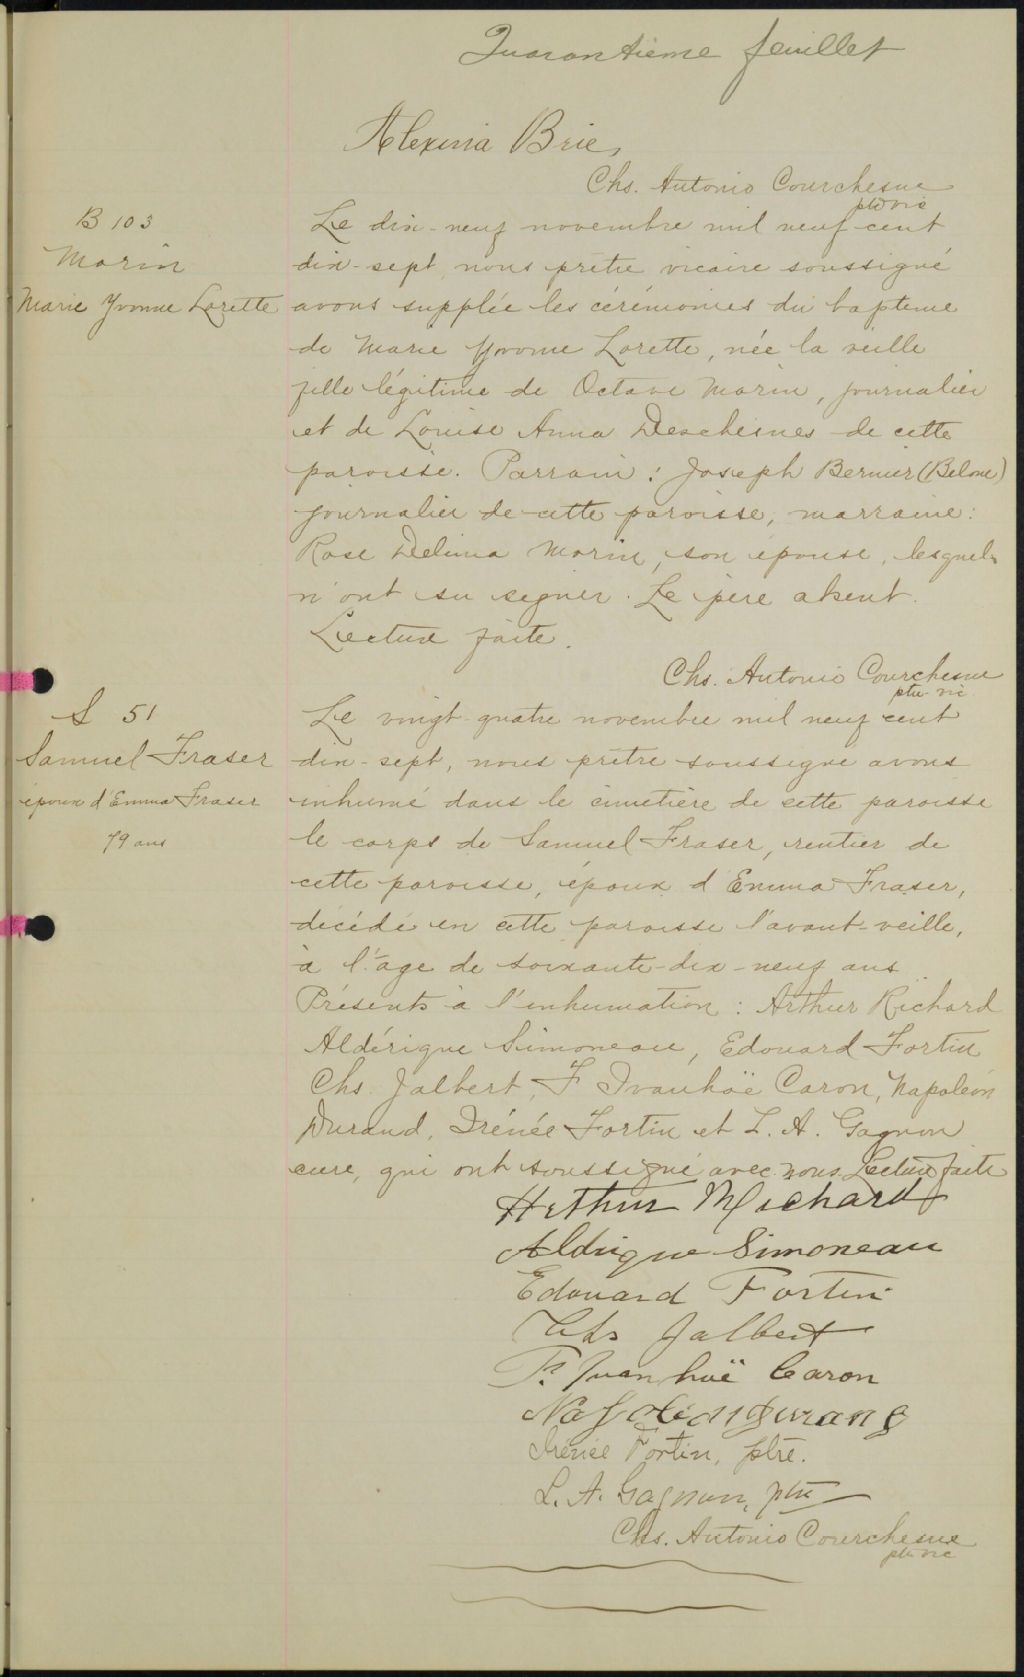 Quarantième feuillet
Alexina Brie,
Chs. Antonio Courchesne
ptre vic
B 103
Morin
Marie Yvonne Lorette
Le dix-neuf novembre mil neuf cent
dix-sept, nous prêtre vicaire soussigné
avons supplée les cérémonies du bapteme
de Marie Yvonne Lorette, née la veille
fille légitime de Octave Morin, journalier
et de Louise Anna Deschesnes de cette
paroisse. Parrain : Joseph Bernier (Belone)
journalier de cette paroisse, marraine :
Rose Delima Morin, son épouse, lesquels
n'ont su signer. Le père absent.
Lecture faite.
Chs. Antonio Courchesne
ptre vic
S 51
Samuel Fraser
époux d'Emma Fraser
79 ans
Le vingt-quatre novembre mil neuf cent
dix-sept, nous prêtre soussigné avons
inhumé dans le cimetière de cette paroisse
le corps de Samuel Fraser, rentier de
cette paroisse, époux d'Emma Fraser,
décédé en cette paroisse l'avant-veille,
à l'âge de soixante-dix-neuf ans.
Présents à l'inhumation : Arthur Richard
Aldérique Simoneau, Edouard Fortin
Chs. Jalbert, F Ivanhoë Caron, Napoléon
Durand, Irénée Fortin et L. A. Gagnon
curé, qui ont soussigné avec nous. Lecture faite
Arthur Richard
Aldrique Simoneau
Edouard Fortin
Chs Jalbert
F. Ivanhoë Caron
Napoléon Durand
Irénée Fortin, ptre.
L. A. Gagnon, ptre
Chs. Antonio Courchesne
ptre vic